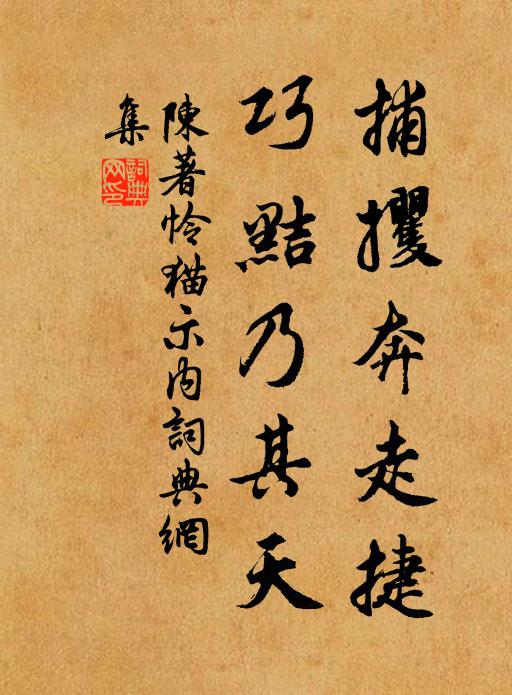 捕攫奔走捷
巧黠乃其天
陳著怜猫示内詞典網
集
詞典
网印